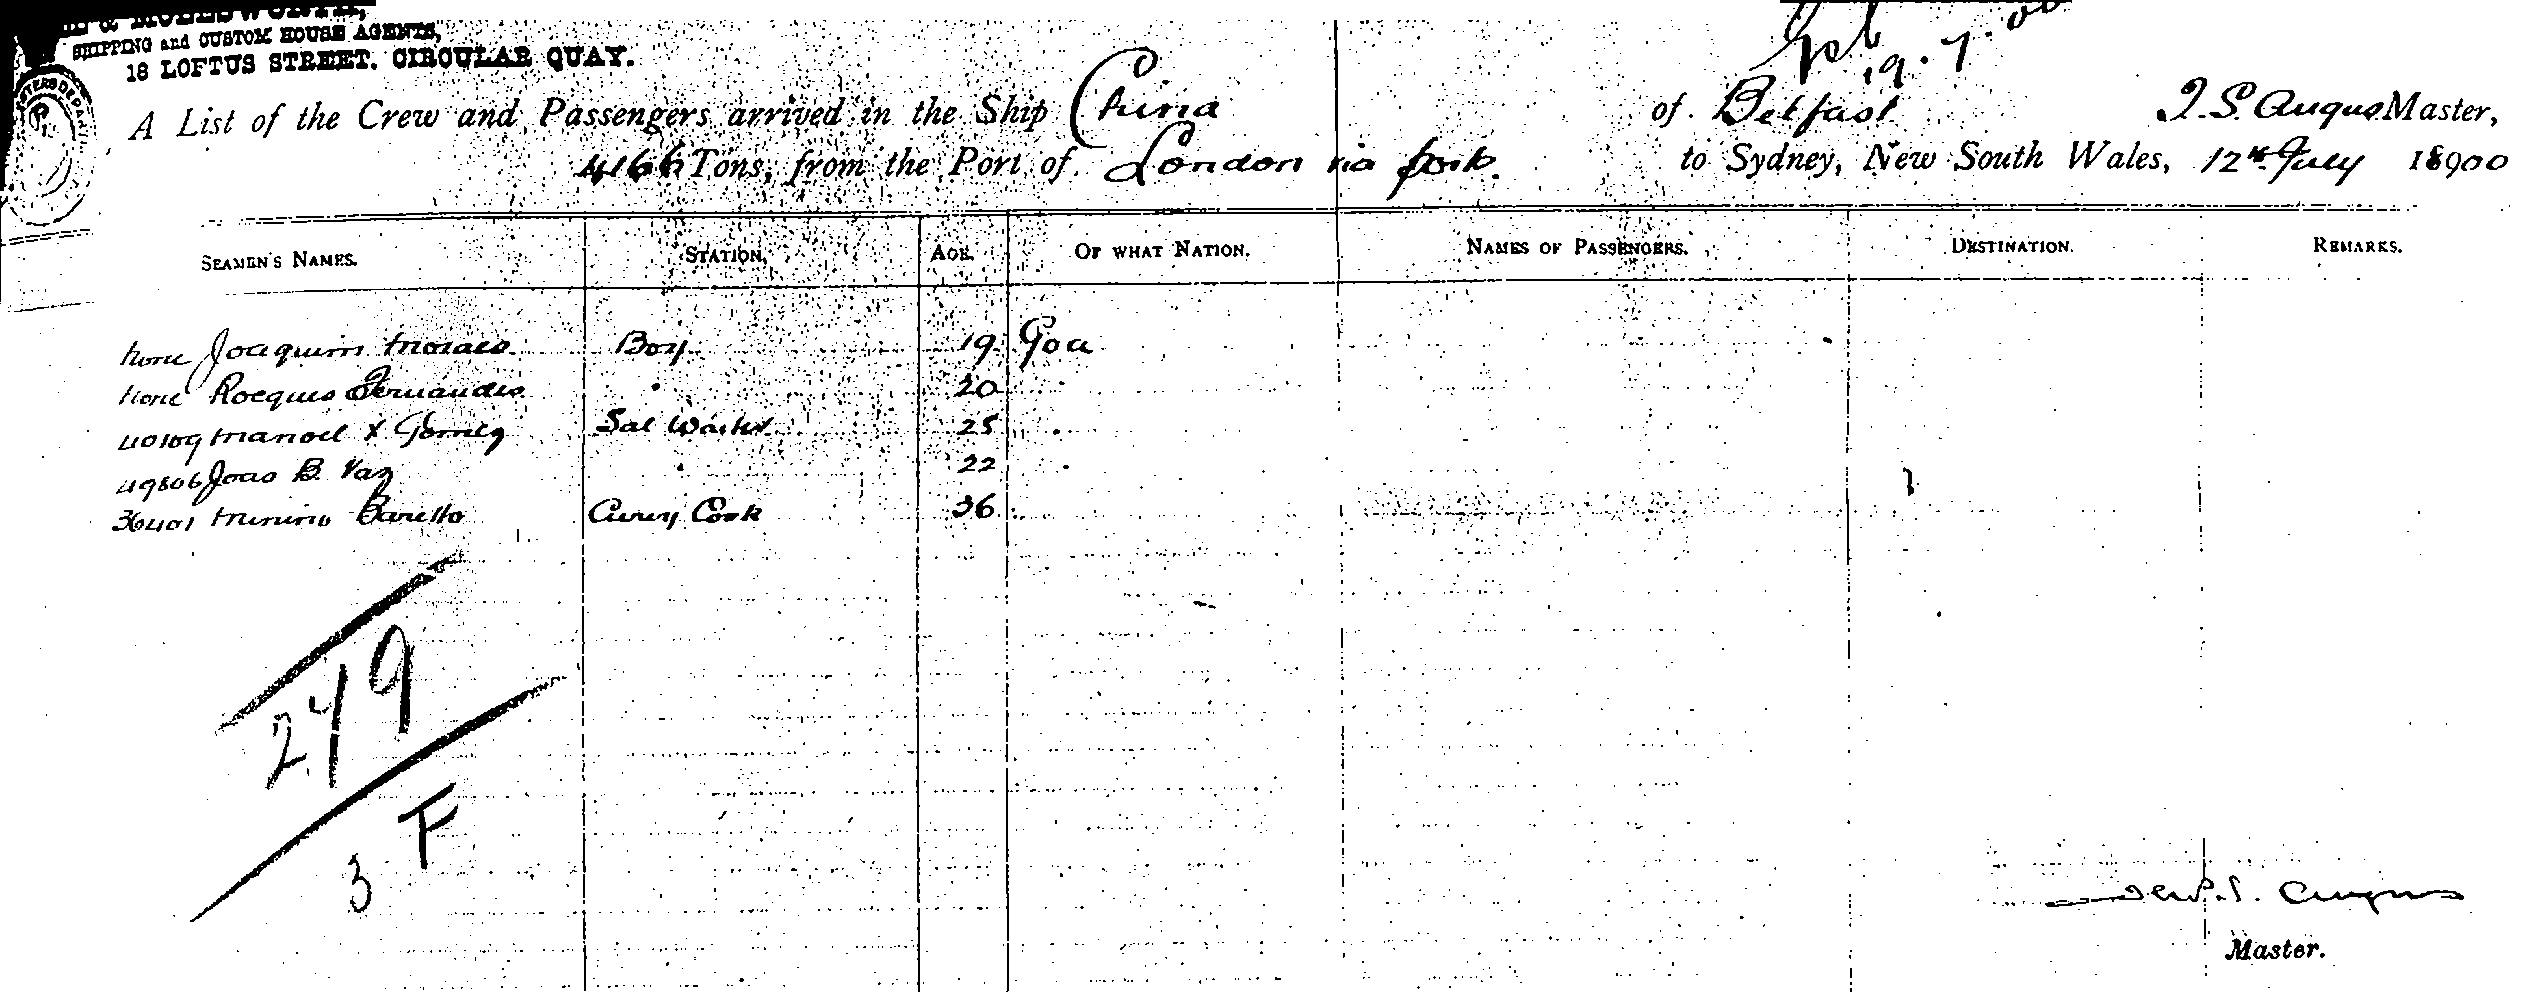 & MOLESWORTH,
SHIPPING and CUSTOM HOUSE AGENTS,
18 LOFTUS STREET. CIRCULAR QUAY.
19.7.00
A List of the Crew and Passengers arrived in the Ship China of Belfast S. Angus Master,
4166 Tons, from the Port of London via ports to Sydney, New South Wales, 12th July 18900
SEAMEN'S NAMES. STATION. AGE. OF WHAT NATION. NAMES OF PASSENGERS. DESTINATION. REMARKS.
none Joaquim Moraes Boy 19 Goa
none Rocques Fernandes " 20 "
40109 Manoel X Gomez Sal Waiter 25 "
49806 Joao B. Vaz " 22 "
36401 Minino Baretto Curry Cook 36
249
3 F
S. Angus
Master.